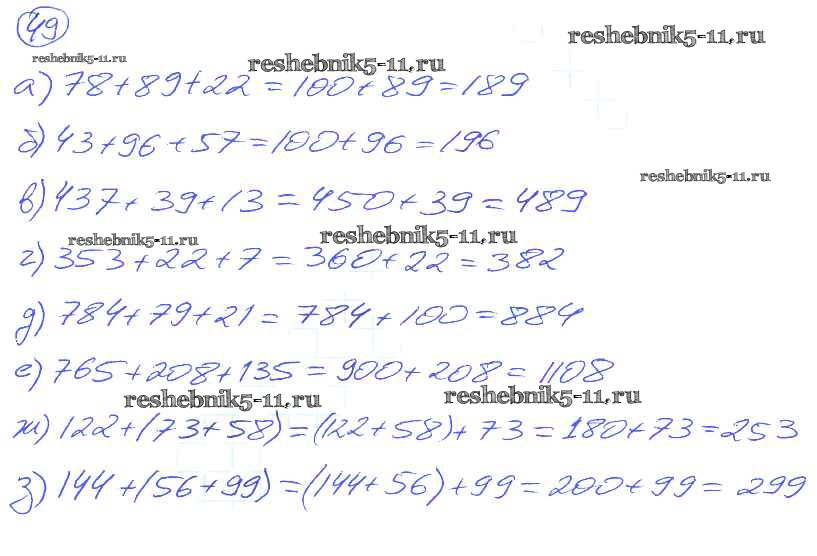 49
reshebnik5-11.ru
reshebnik5-11.ru
reshebnik5-11.ru
а) 78+89+22=100+89=189
б) 43+96+57=100+96=196
в) 437+39+13=450+39=489
reshebnik5-11.ru
reshebnik5-11.ru
reshebnik5-11.ru
г) 353+22+7=360+22=382
д) 784+79+21=784+100=884
е) 765+208+135=900+208=1108
reshebnik5-11.ru
reshebnik5-11.ru
ж) 122+(73+58)=(122+58)+73=180+73=253
з) 144+(56+99)=(144+56)+99=200+99=299